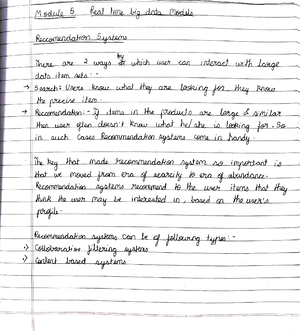 Module 5 Real time big data Models
Reccomendation Systems
There are 2 ways by which user can interact with large
data item sets :-
→ Search: Users know what they are looking for, they know
the precise item.
→ Recomendation:- If items in the products are large & similar
then user often doesn't know what he/she is looking for. So
in such cases Recommendation systems come in handy.
The key that made recommendation system so important is
that we moved from era of scarcity to era of abundance.
Recommendation systems recommend to the user items that they
think the user may be interested in, based on the user's
profile.
Recommendation systems can be of following types:-
Collaborative filtering systems
Content based systems